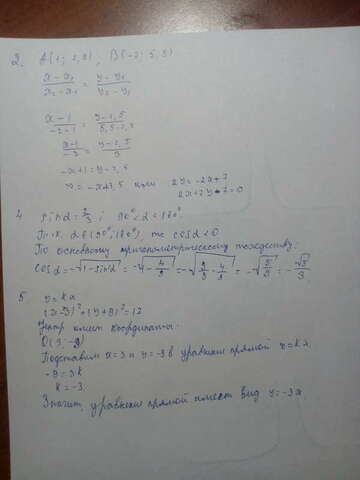 2. A(1; 2,5); B(-2; 5,5)
x - x₁ / x₂ - x₁ = y - y₁ / y₂ - y₁
x - 1 / -2 - 1 = y - 2,5 / 5,5 - 2,5
x - 1 / -3 = y - 2,5 / 3
-x + 1 = y - 2,5
y = -x + 3,5 или 2y = -2x + 7
2x + 2y - 7 = 0
4. sin α = 2/3 ; 90° < α < 180°
Т.к. α ∈ (90°; 180°), то cos α < 0
По основному тригонометрическому тождеству:
cos α = -√1 - sin²α = -√1 - 4/9 = -√9/9 - 4/9 = -√5/9 = -√5/3
5. y = kx
(x - 3)² + (y + 9)² = 12
Центр имеет координаты:
O(3; -9)
Подставим x = 3 и y = -9 в уравнение прямой y = kx
-9 = 3k
k = -3
Значит, уравнение прямой имеет вид y = -3x